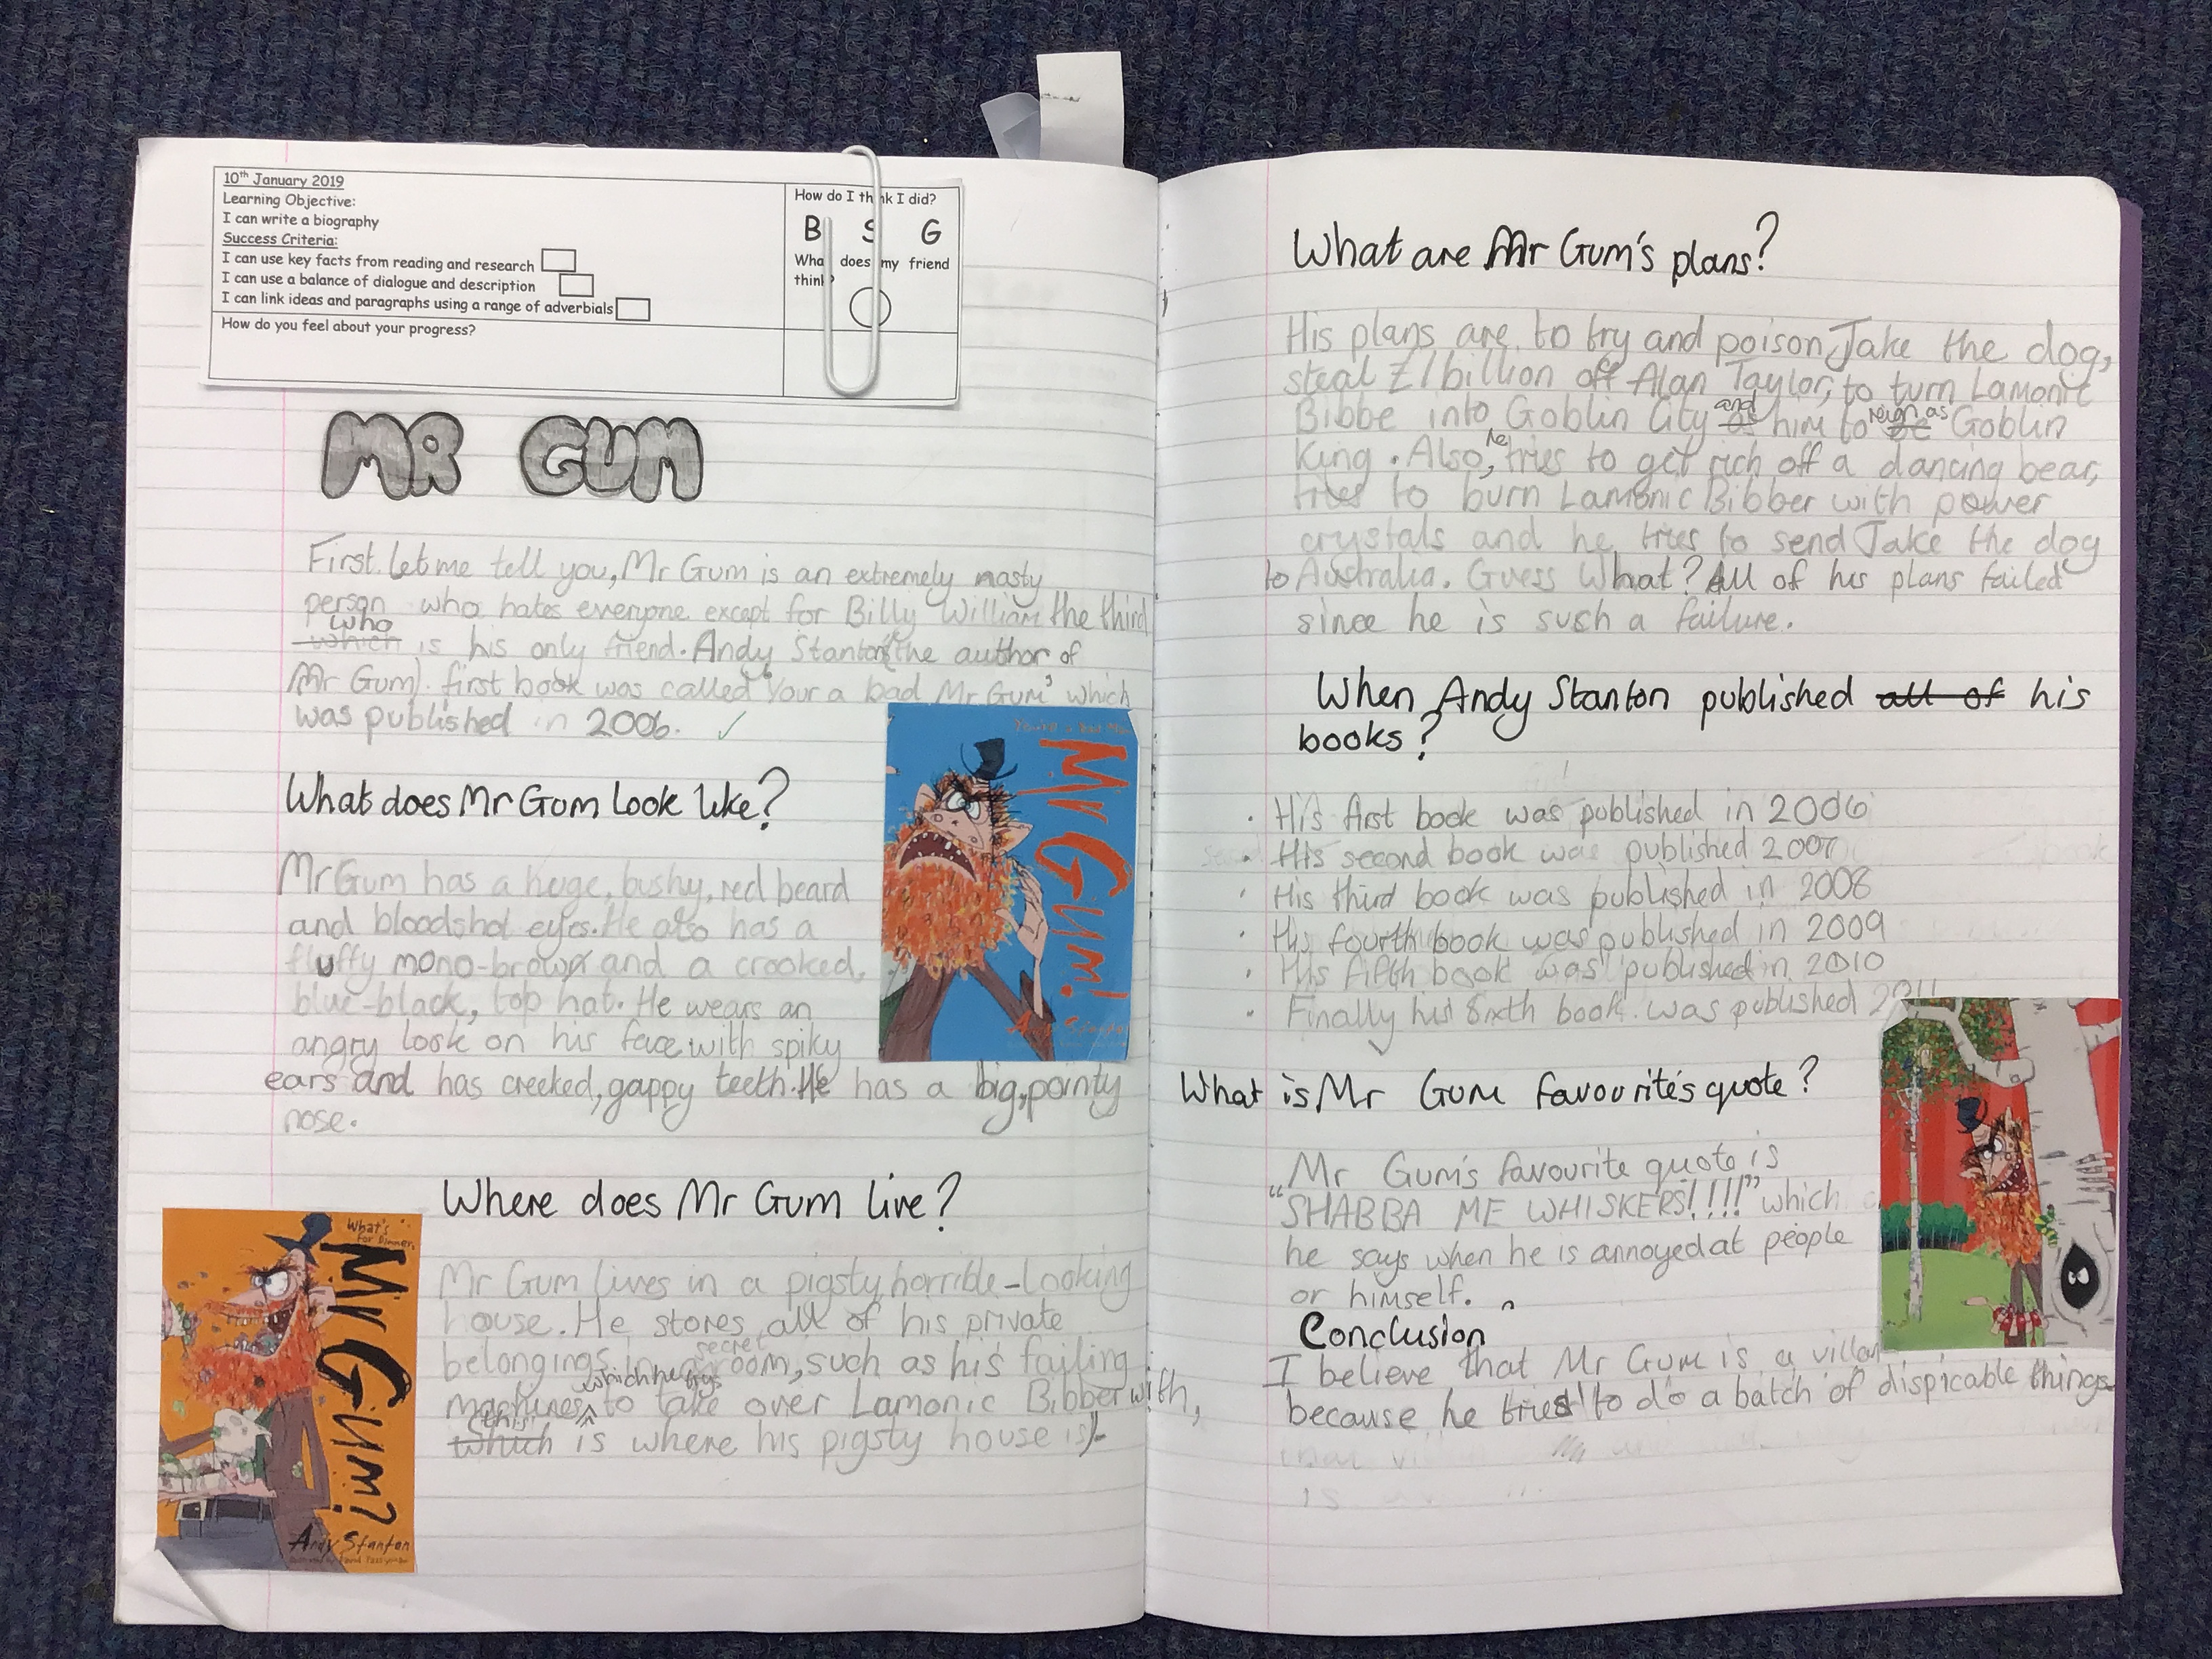 10th January 2019
Learning Objective:
I can write a biography
Success Criteria:
I can use key facts from reading and research
I can use a balance of dialogue and description
I can link ideas and paragraphs using a range of adverbials
How do you feel about your progress?
How do I think I did?
B S G
What does my friend
think?
MR GUM
First let me tell you, Mr Gum is an extremely nasty
person who hates everyone except for Billy William the third
who
which is his only friend. Andy Stanton's (the author of
Mr Gum). first book was called 'Your a bad Mr Gum' which
was published in 2006.
What does Mr Gum look like?
Mr Gum has a huge, bushy, red beard
and bloodshot eyes. He also has a
fluffy mono-brow and a crooked,
blue-black, top hat. He wears an
angry look on his face with spiky
ears and has creeked, gappy teeth. He has a big, pointy
nose.
Mr Gum!
Andy Stanton
Where does Mr Gum live?
Mr Gum lives in a pigsty, horrible-looking
house. He stores all of his private
secret
belongings in a room, such as his failing
which he trys
machines to take over Lamonic Bibber with,
(this
which is where his pigsty house is).
What's
For Dinner,
Mr Gum?
Andy Stanton
What are Mr Gum's plans?
His plans are to try and poison Jake the dog,
steal £1 billion off Alan Taylor, to turn Lamonic
and reign as
Bibbe into Goblin City as him to be Goblin
he
King. Also, tries to get rich off a dancing bear,
tries to burn Lamonic Bibber with power
crystals and he tries to send Jake the dog
to Australia. Guess What? All of his plans failed
since he is such a failure.
When Andy Stanton published all of his
books?
· His first book was published in 2006
· His second book was published 2007
· His third book was published in 2008
· His fourth book was published in 2009
· His fifth book was published in 2010
· Finally his sixth book was published 2011
What is Mr Gum favourite's quote?
Mr Gum's favourite quote is
"SHABBA ME WHISKERS!!!!" which
he says when he is annoyed at people
or himself.
Conclusion
I believe that Mr Gum is a villan
because he tried to do a batch of dispicable things